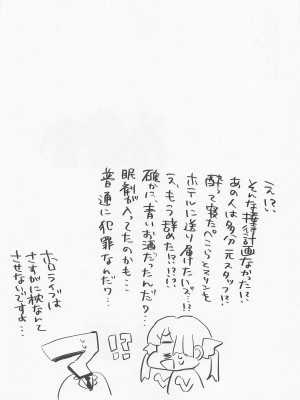 え!?
そんな接待計画なかった!?
あの人は多分元スタッフ!?
酔って寝たぺこらとマリンを
ホテルに送り届けたいズ…!?
え、もう辞めた!?!?
確かに、青いお酒だったんだ?…
眠剤が入ってたのかも…
普通に犯罪なんだ?…
ホロライブは
さすがに枕なんて
させないですよ…
!?